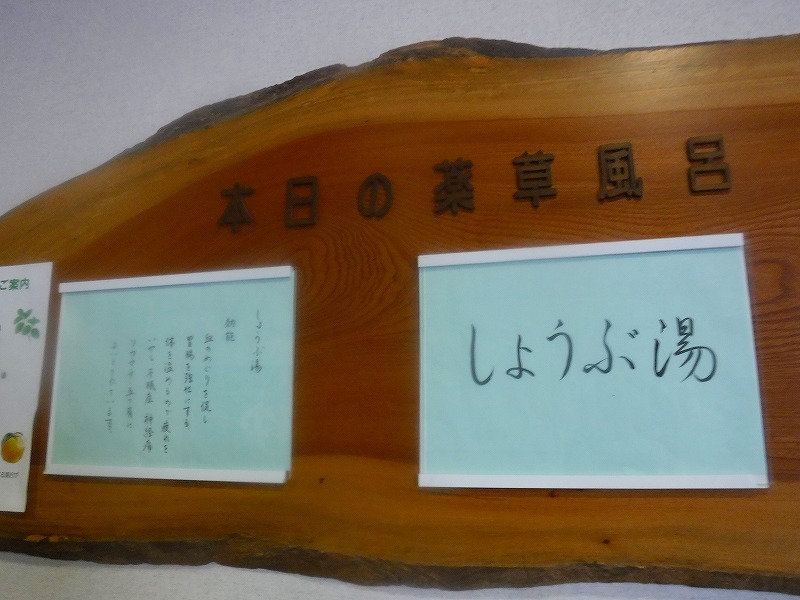 本日の薬草風呂
しょうぶ湯
しょうぶ湯
効能
血のめぐりを促し
胃腸を強壮にする
体を温めるので疲れを
いやし、冷え症 神経痛
よいとされています
ご案内